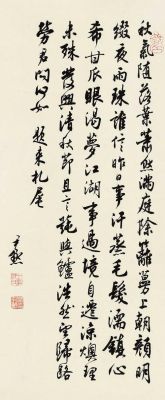 秋氣隨落葉蕭然滿庭除籬萼上朝顏明
綴夜雨珠誰信昨日事汗蒸毛髮濡鎮心
希甘瓜眼渴夢江湖事過境自遷涼燠理
未殊發興清秋節且言蓴與鱸浩然望歸路
勞君問何如 題來札尾
尹默